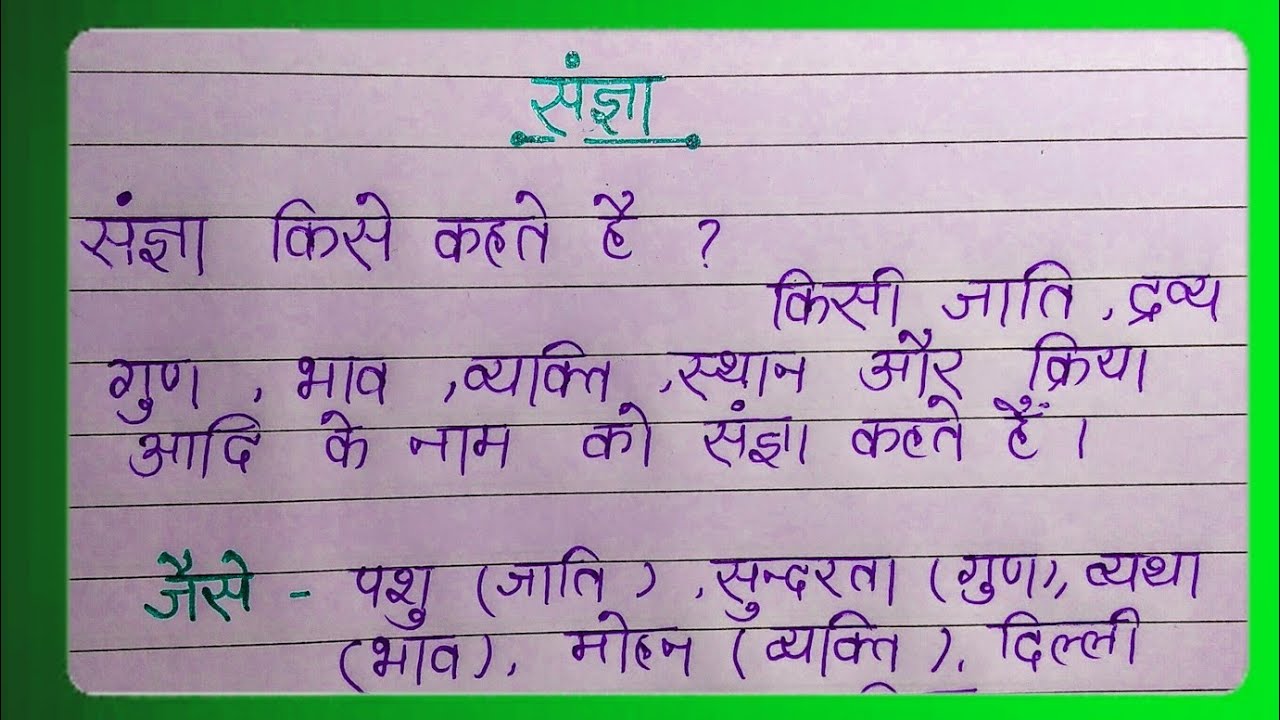 संज्ञा
संज्ञा किसे कहते है ?
किसी जाति , द्रव्य
गुण , भाव , व्यक्ति , स्थान और क्रिया
आदि के नाम को संज्ञा कहते हैं ।
जैसे - पशु (जाति ) , सुन्दरता (गुण), व्यथा
(भाव), मोहन ( व्यक्ति ), दिल्ली